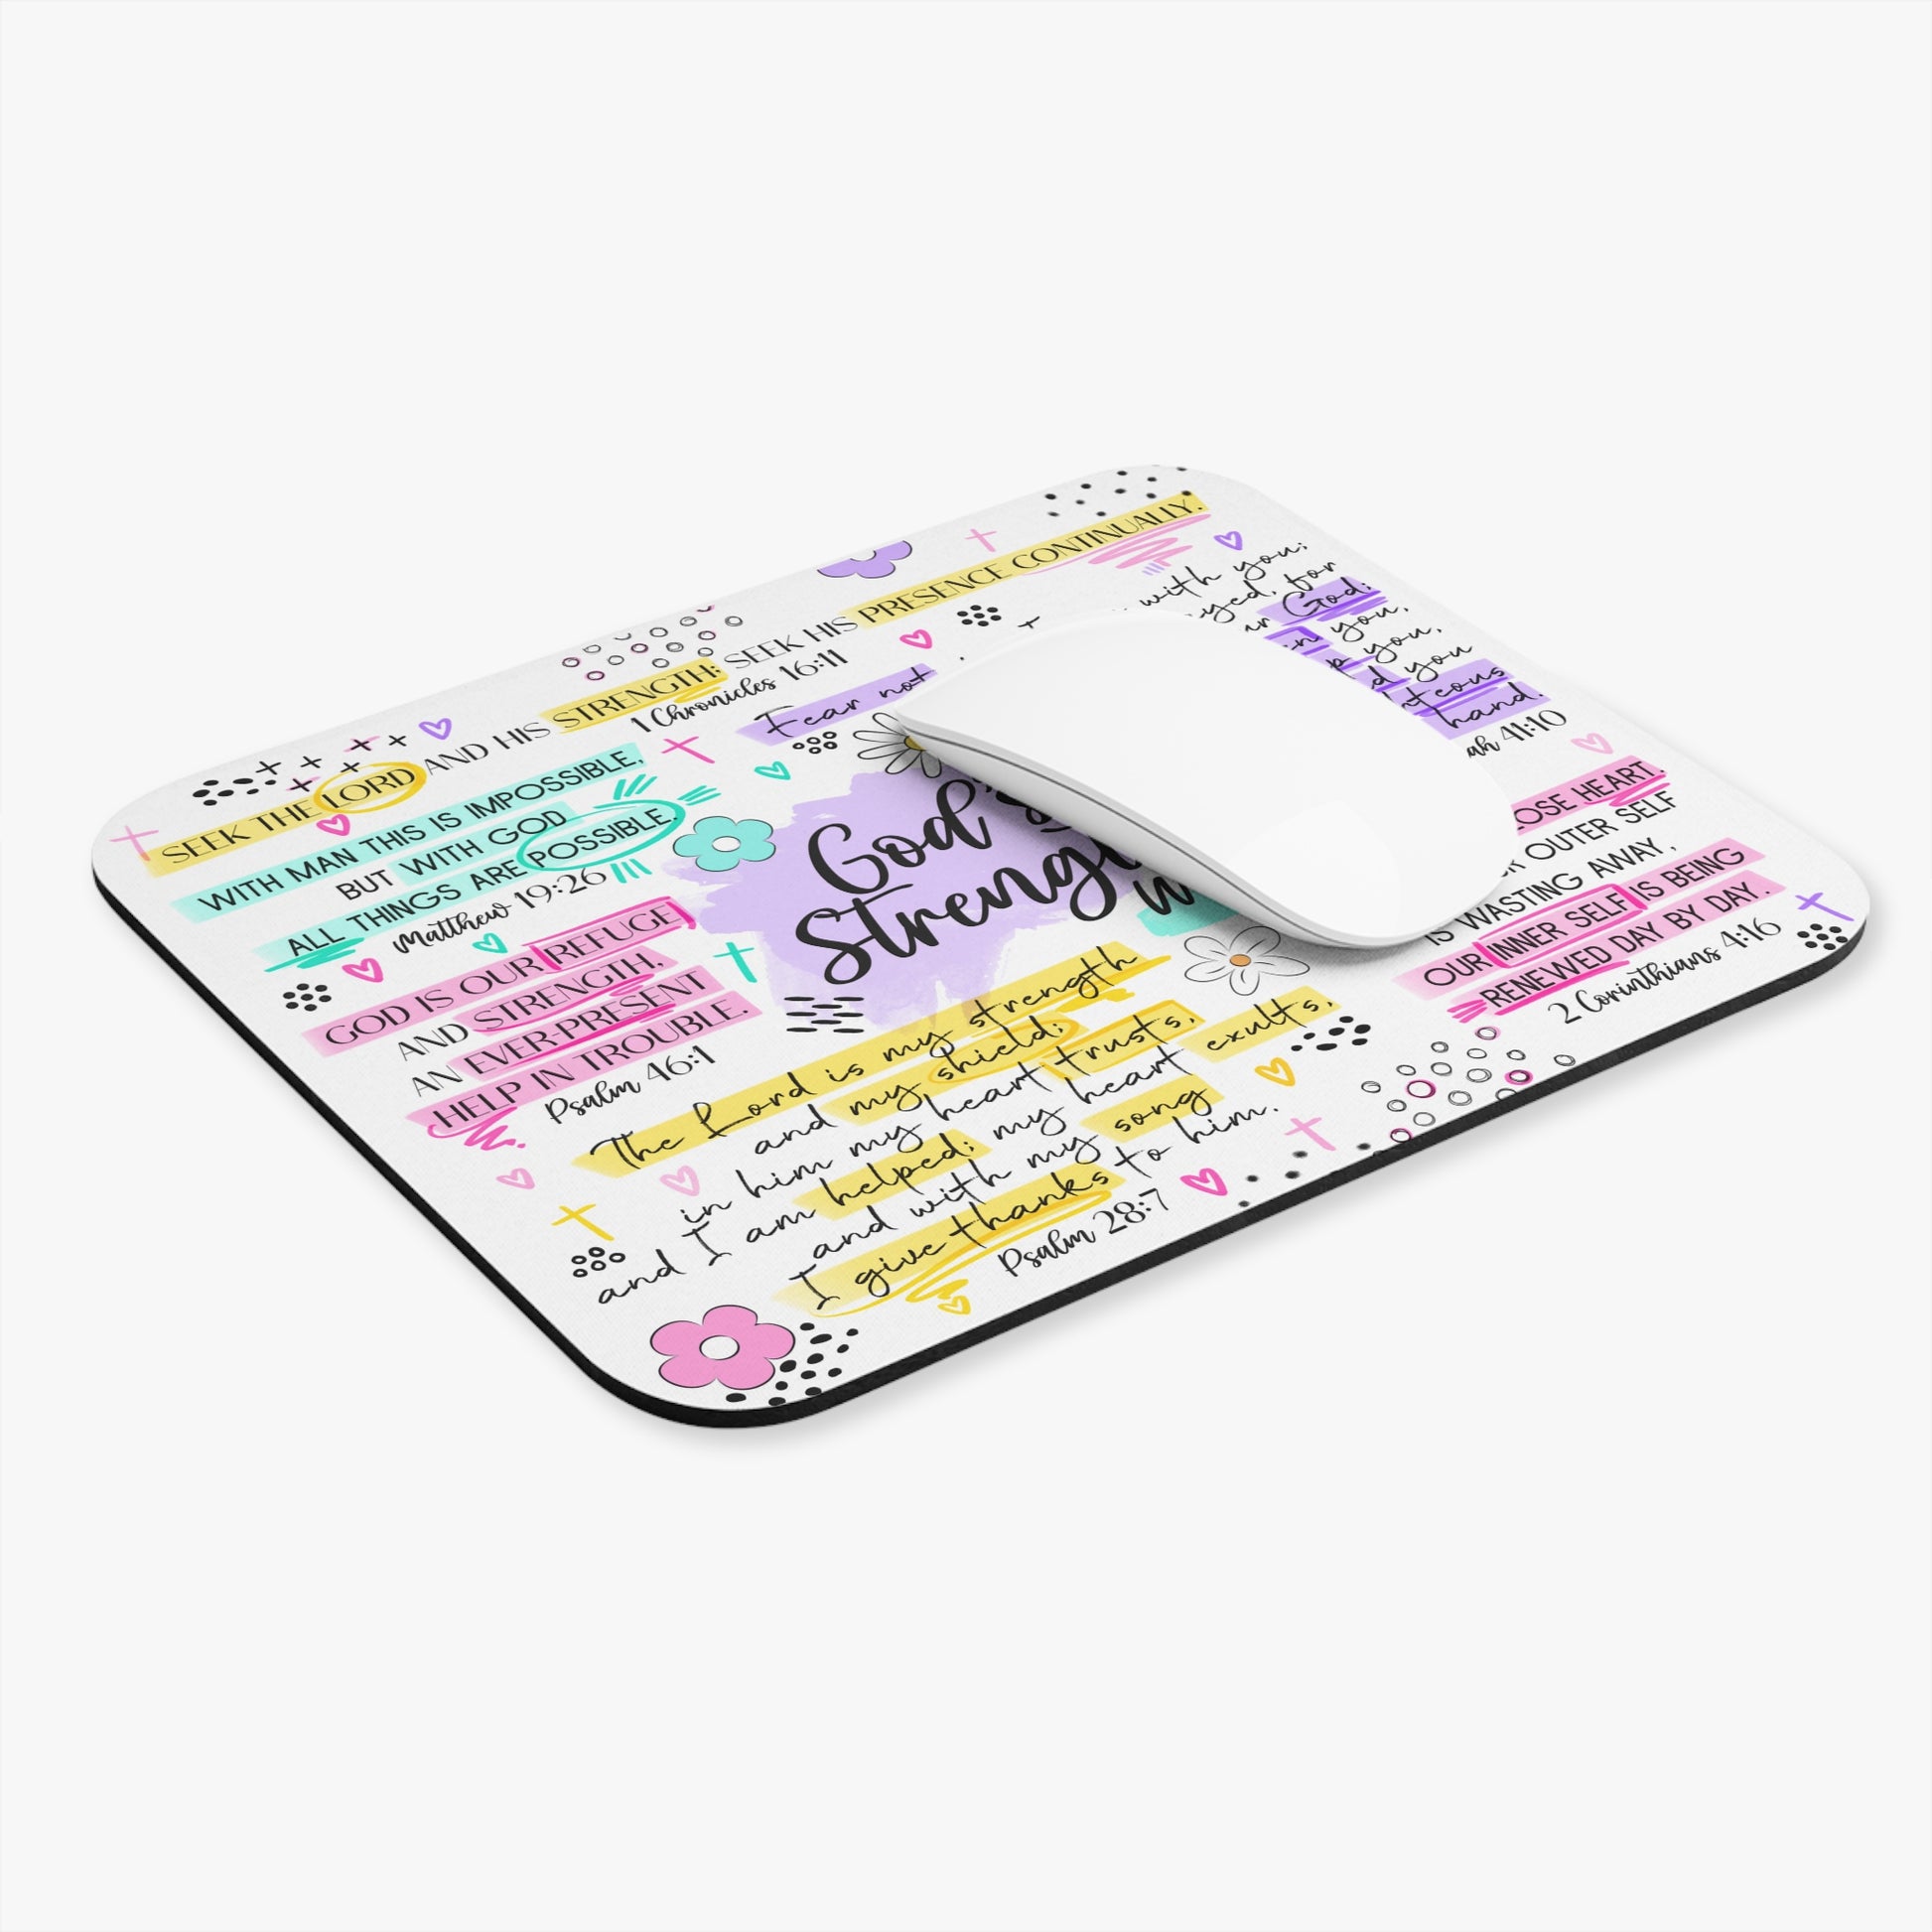 SEEK THE LORD AND HIS STRENGTH; SEEK HIS PRESENCE CONTINUALLY.
1 Chronicles 16:11
WITH MAN THIS IS IMPOSSIBLE,
BUT WITH GOD
ALL THINGS ARE POSSIBLE.
Matthew 19:26
GOD IS OUR REFUGE
AND STRENGTH,
AN EVER-PRESENT
HELP IN TROUBLE.
Psalm 46:1
God's
Fear not
with you;
for
God;
you,
you,
you
hand.
41:10
LOSE HEART.
OUTER SELF
IS WASTING AWAY,
OUR INNER SELF IS BEING
RENEWED DAY BY DAY.
2 Corinthians 4:16
The Lord is my strength
and my shield;
in him my heart trusts,
and I am helped; my heart exults,
and with my song
I give thanks to him.
Psalm 28:7